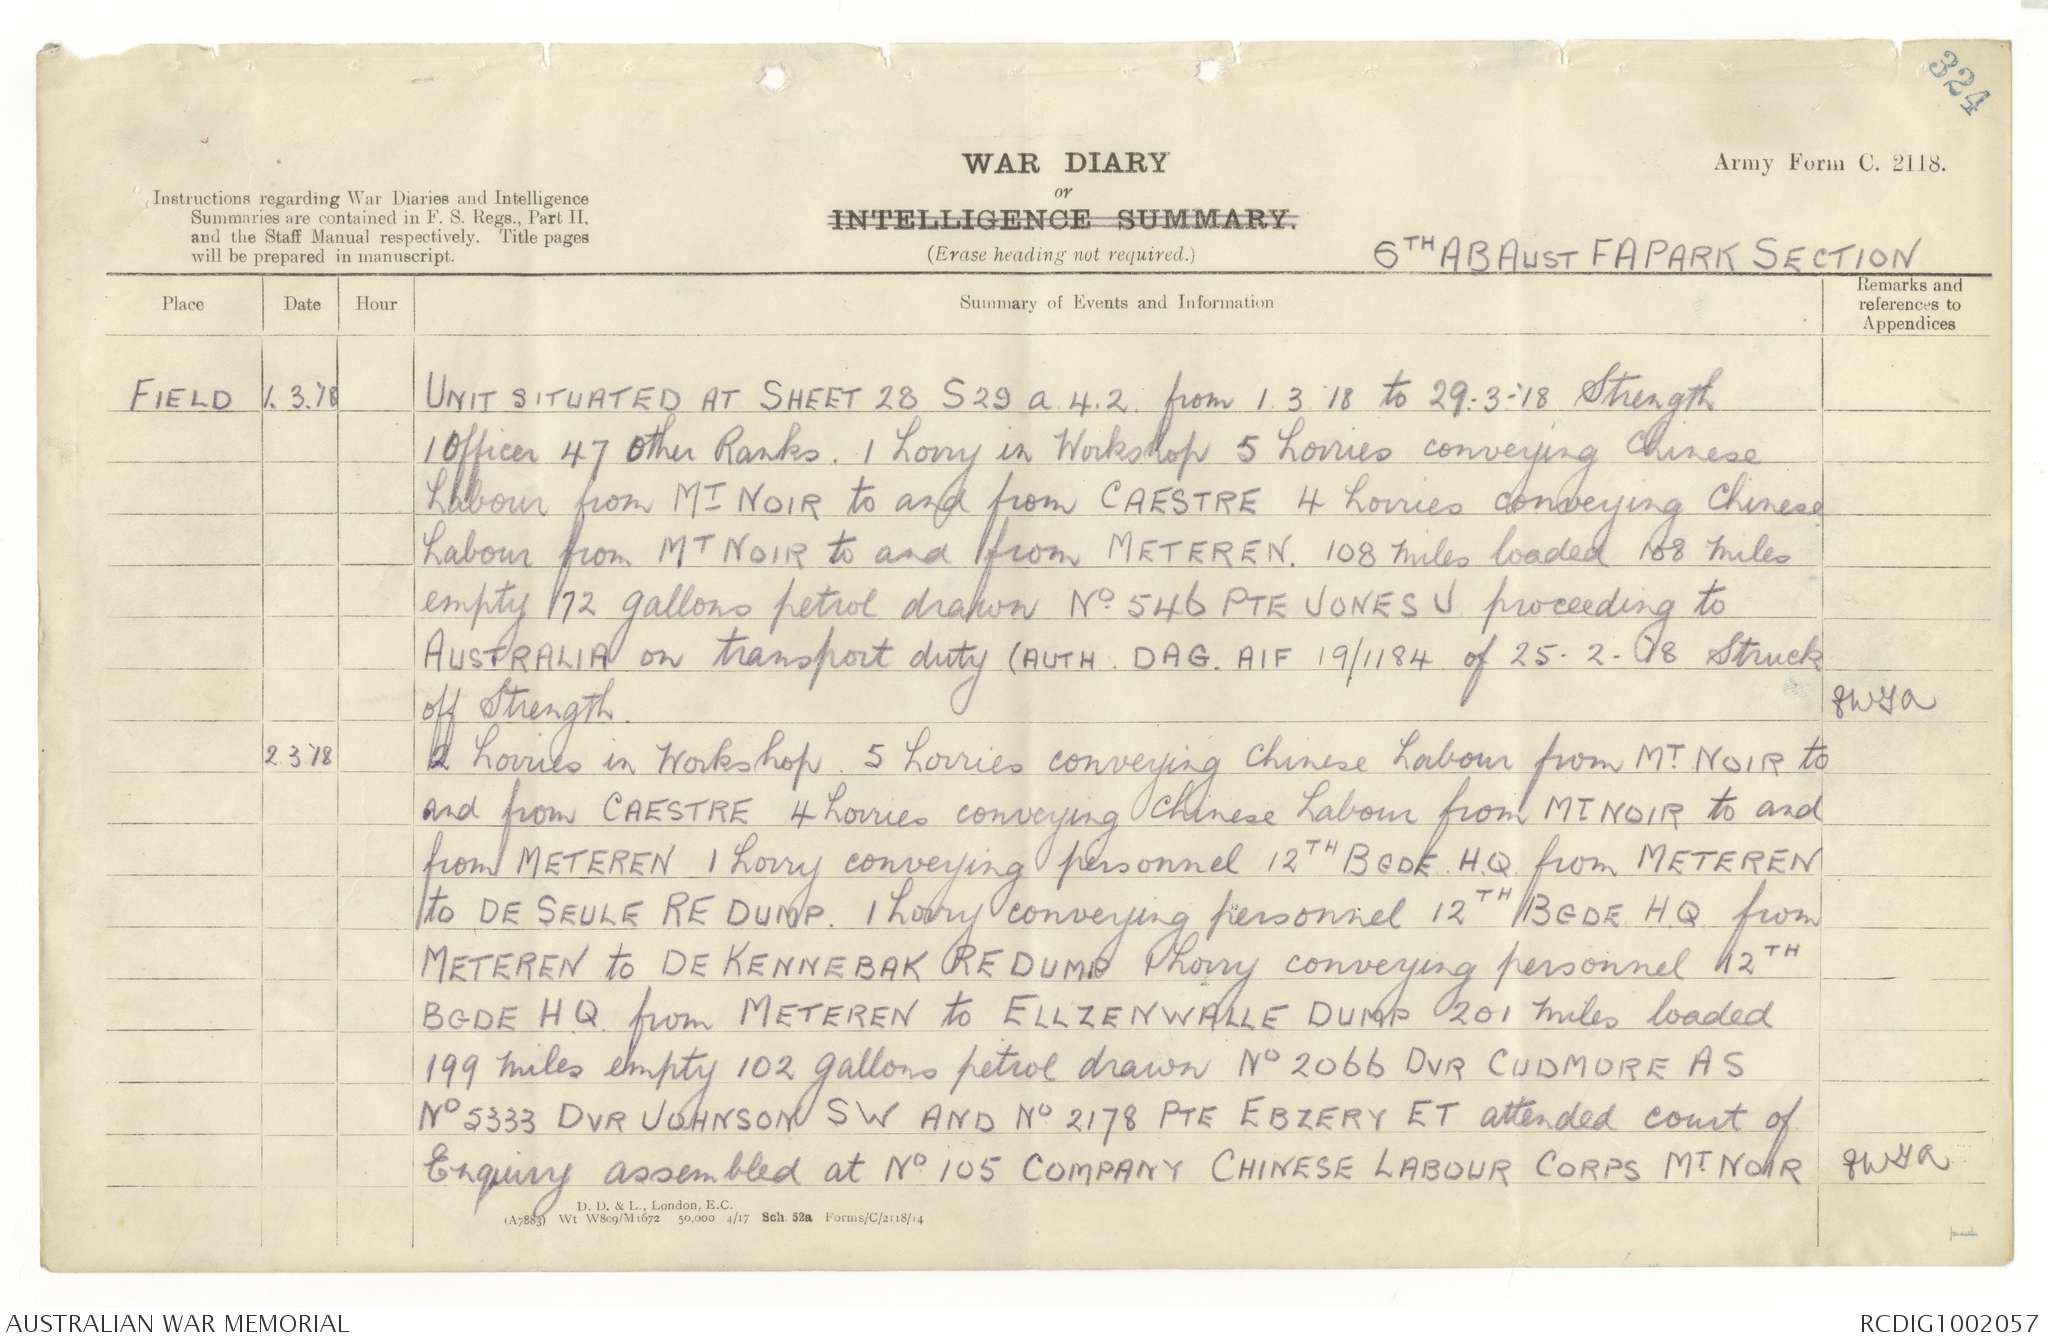 324
WAR DIARY
or
INTELLIGENCE SUMMARY.
(Erase heading not required.)
Army Form C. 2118.
Instructions regarding War Diaries and Intelligence
Summaries are contained in F. S. Regs., Part II,
and the Staff Manual respectively. Title pages
will be prepared in manuscript.
6TH AB AUST FA PARK SECTION
Place Date Hour Summary of Events and Information Remarks and references to Appendices
FIELD 1.3.'18 UNIT SITUATED AT SHEET 28 S29 a 4.2. from 1.3.'18 to 29.3.'18 Strength
1 Officer 47 Other Ranks. 1 Lorry in Workshop 5 Lorries conveying Chinese
Labour from MT NOIR to and from CAESTRE 4 Lorries conveying Chinese
Labour from MT NOIR to and from METEREN. 108 Miles loaded 108 Miles
empty 72 gallons petrol drawn No 546 PTE JONES J proceeding to
AUSTRALIA on transport duty (AUTH. DAG. AIF 19/1184 of 25.2.'18 Struck
off Strength.
2.3.'18 2 Lorries in Workshop. 5 Lorries conveying Chinese Labour from MT NOIR to
and from CAESTRE 4 Lorries conveying Chinese Labour from MT NOIR to and
from METEREN 1 Lorry conveying personnel 12TH BGDE. H.Q. from METEREN
to DE SEULE RE DUMP. 1 Lorry conveying personnel 12TH BGDE H.Q. from
METEREN to DE KENNEBAK RE DUMP 1 Lorry conveying personnel 12TH
BGDE H.Q. from METEREN to ELLZENWALLE DUMP 201 Miles loaded
199 Miles empty 102 gallons petrol drawn No 2066 DVR CUDMORE A S
No 5333 DVR JOHNSON S W AND No 2178 PTE EBZERY ET attended court of
Enquiry assembled at No 105 COMPANY CHINESE LABOUR CORPS MT NOIR
D. D. & L., London, E.C.
(A7883) Wt W809/M1672 50,000 4/17 Sch. 52a Forms/C/2118/14
AUSTRALIAN WAR MEMORIAL
RCDIG1002057